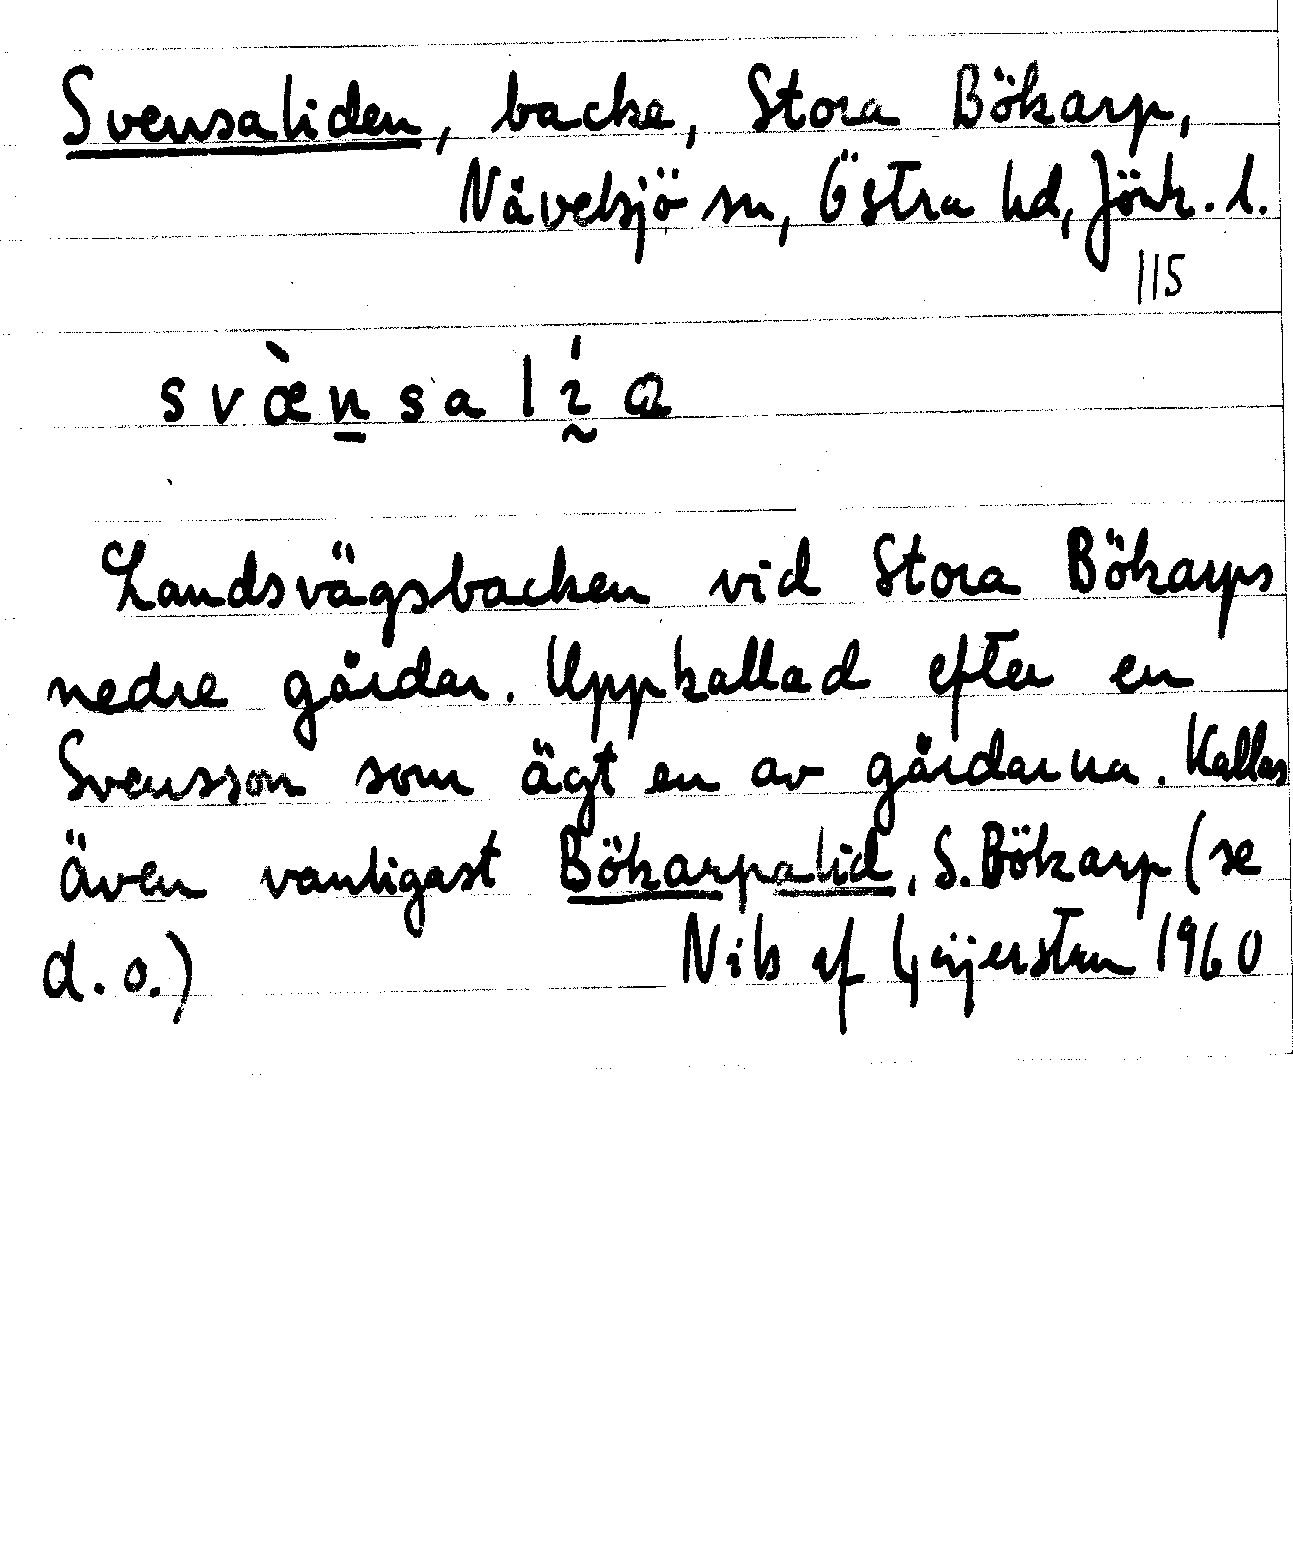 Svensaliden, backe, Stora Bökarp,
Nävelsjö sn, Östra hd, Jönk. l.
115
svæ̀n̲salḭ́a
Landsvägsbacken vid Stora Bökarps
nedre gårdar. Uppkallad efter en
Svensson som ägt en av gårdarna. Kallas
även vanligast Bökarpalid, S. Bökarp (se
d. o.) Nils af Geijerstam 1960